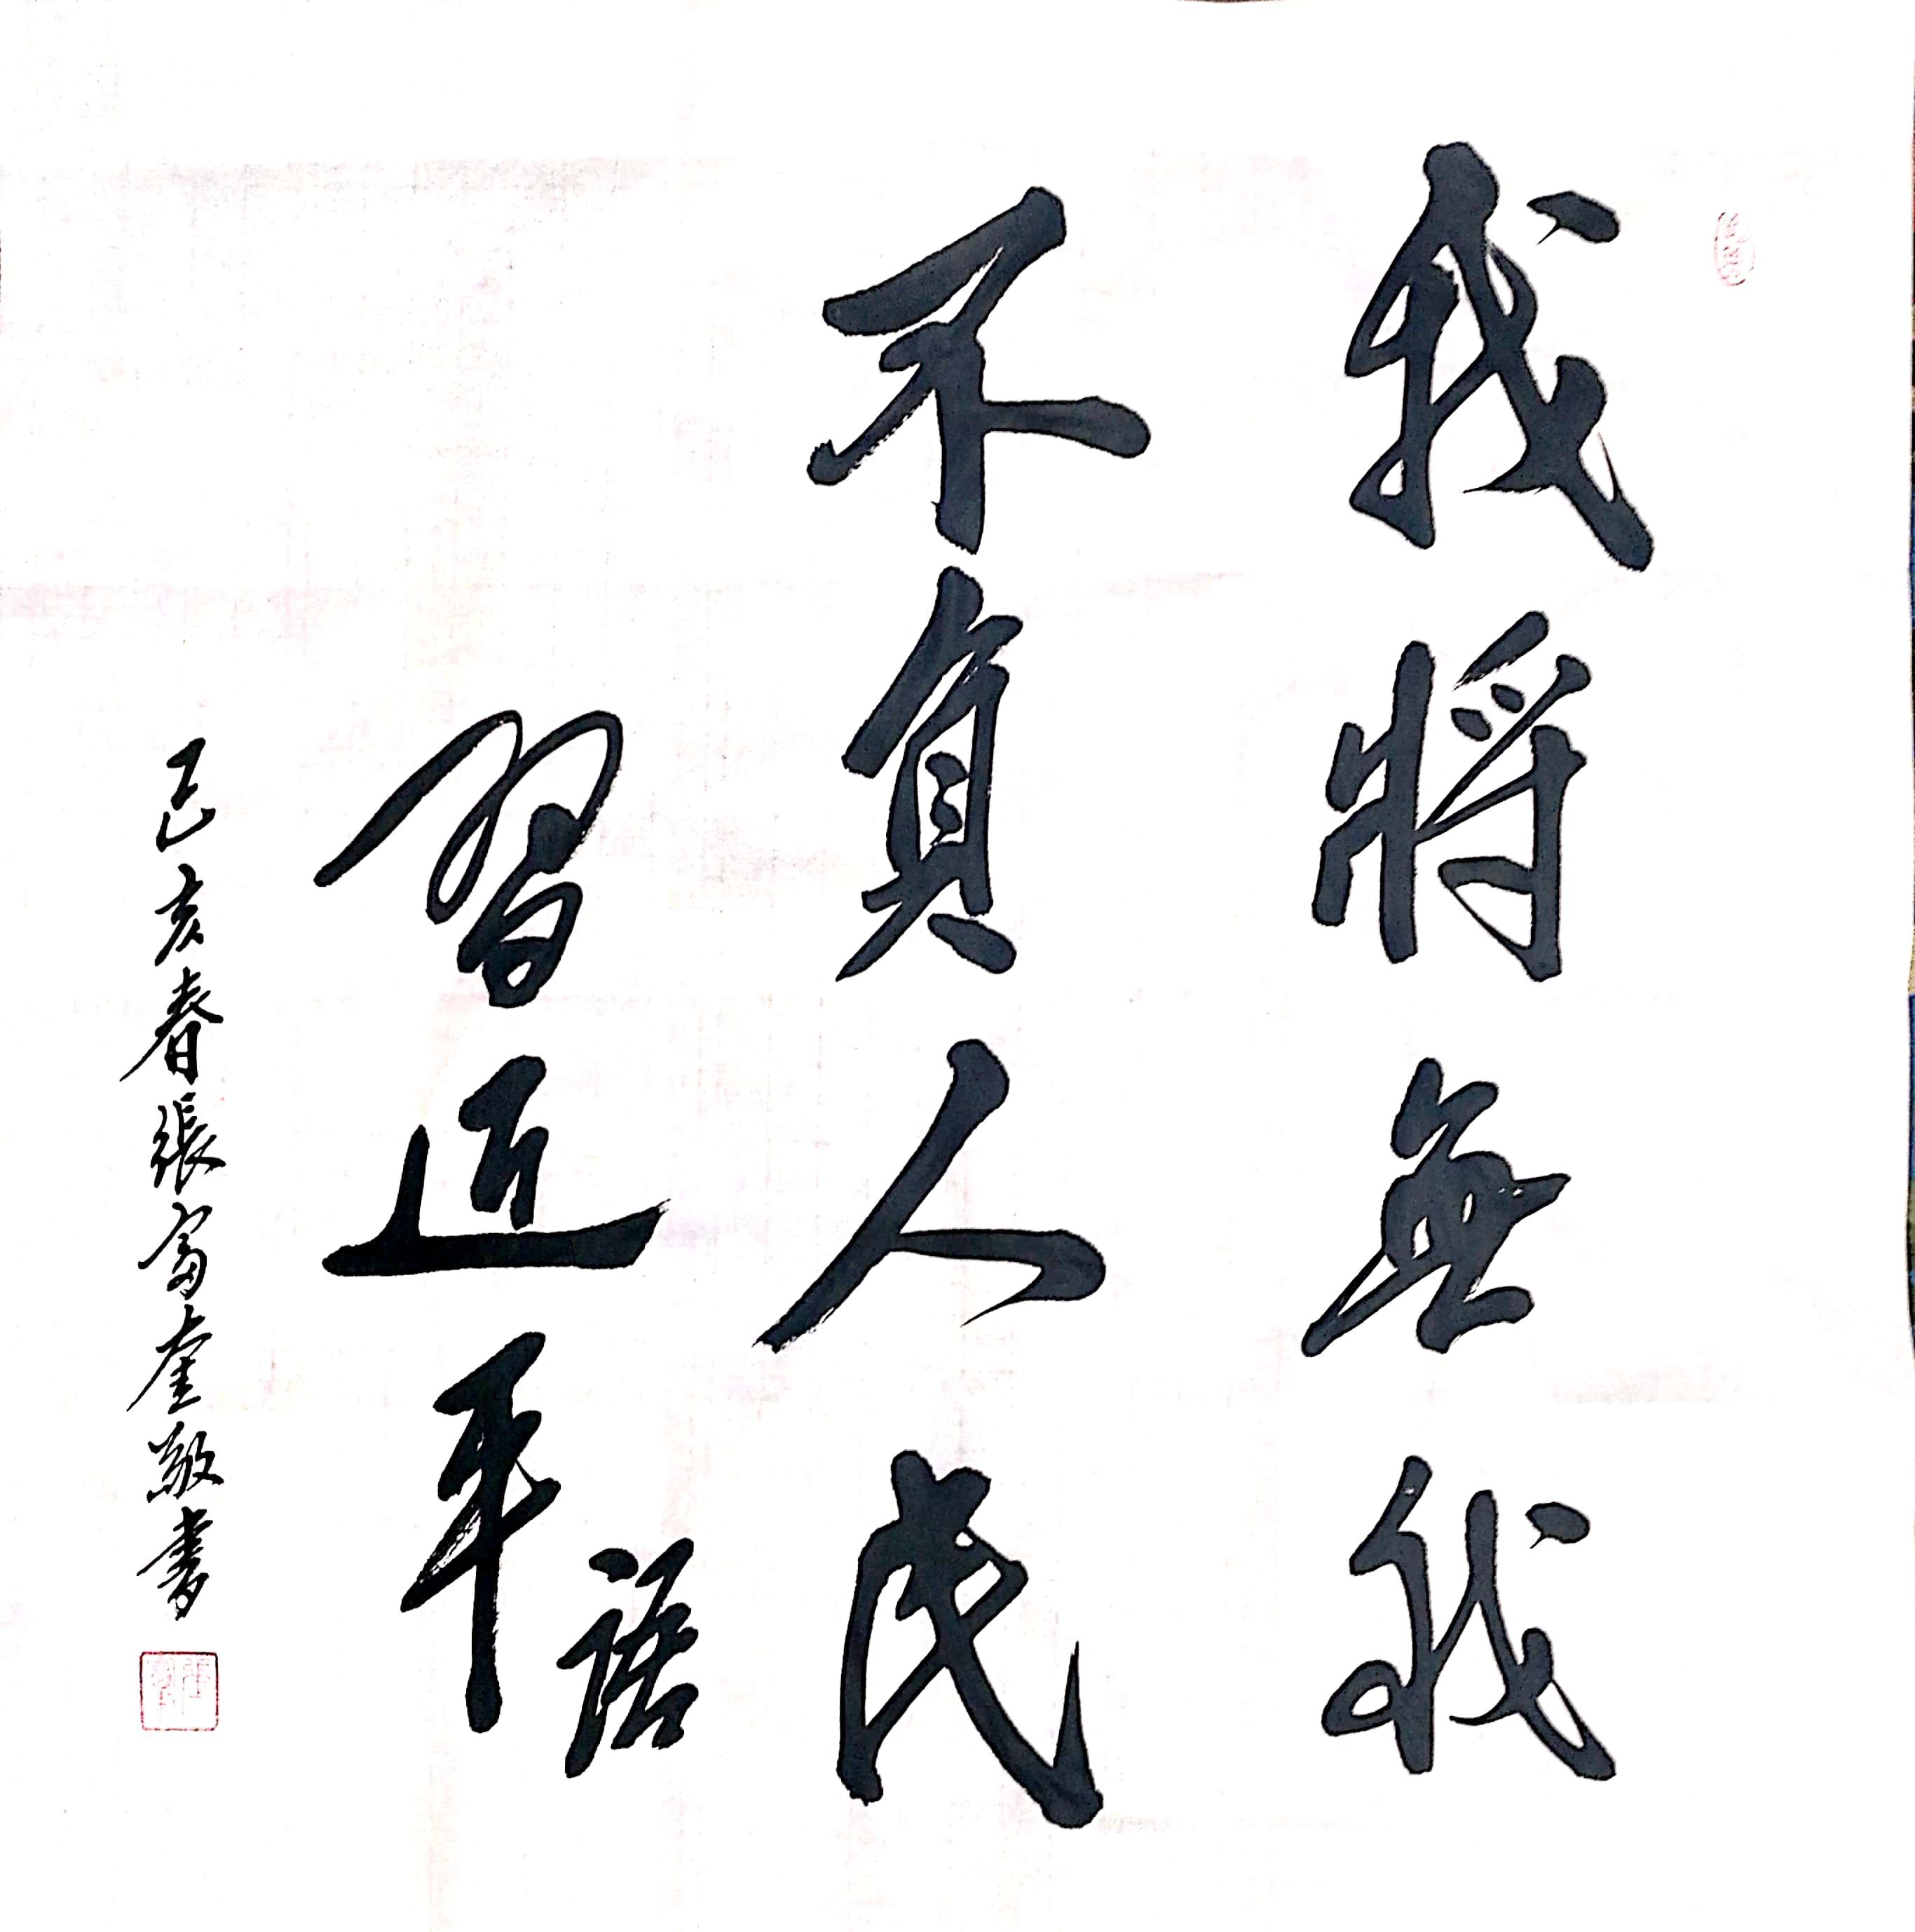 我將無我
不負人民
習近平語
己亥春張富奎敬書